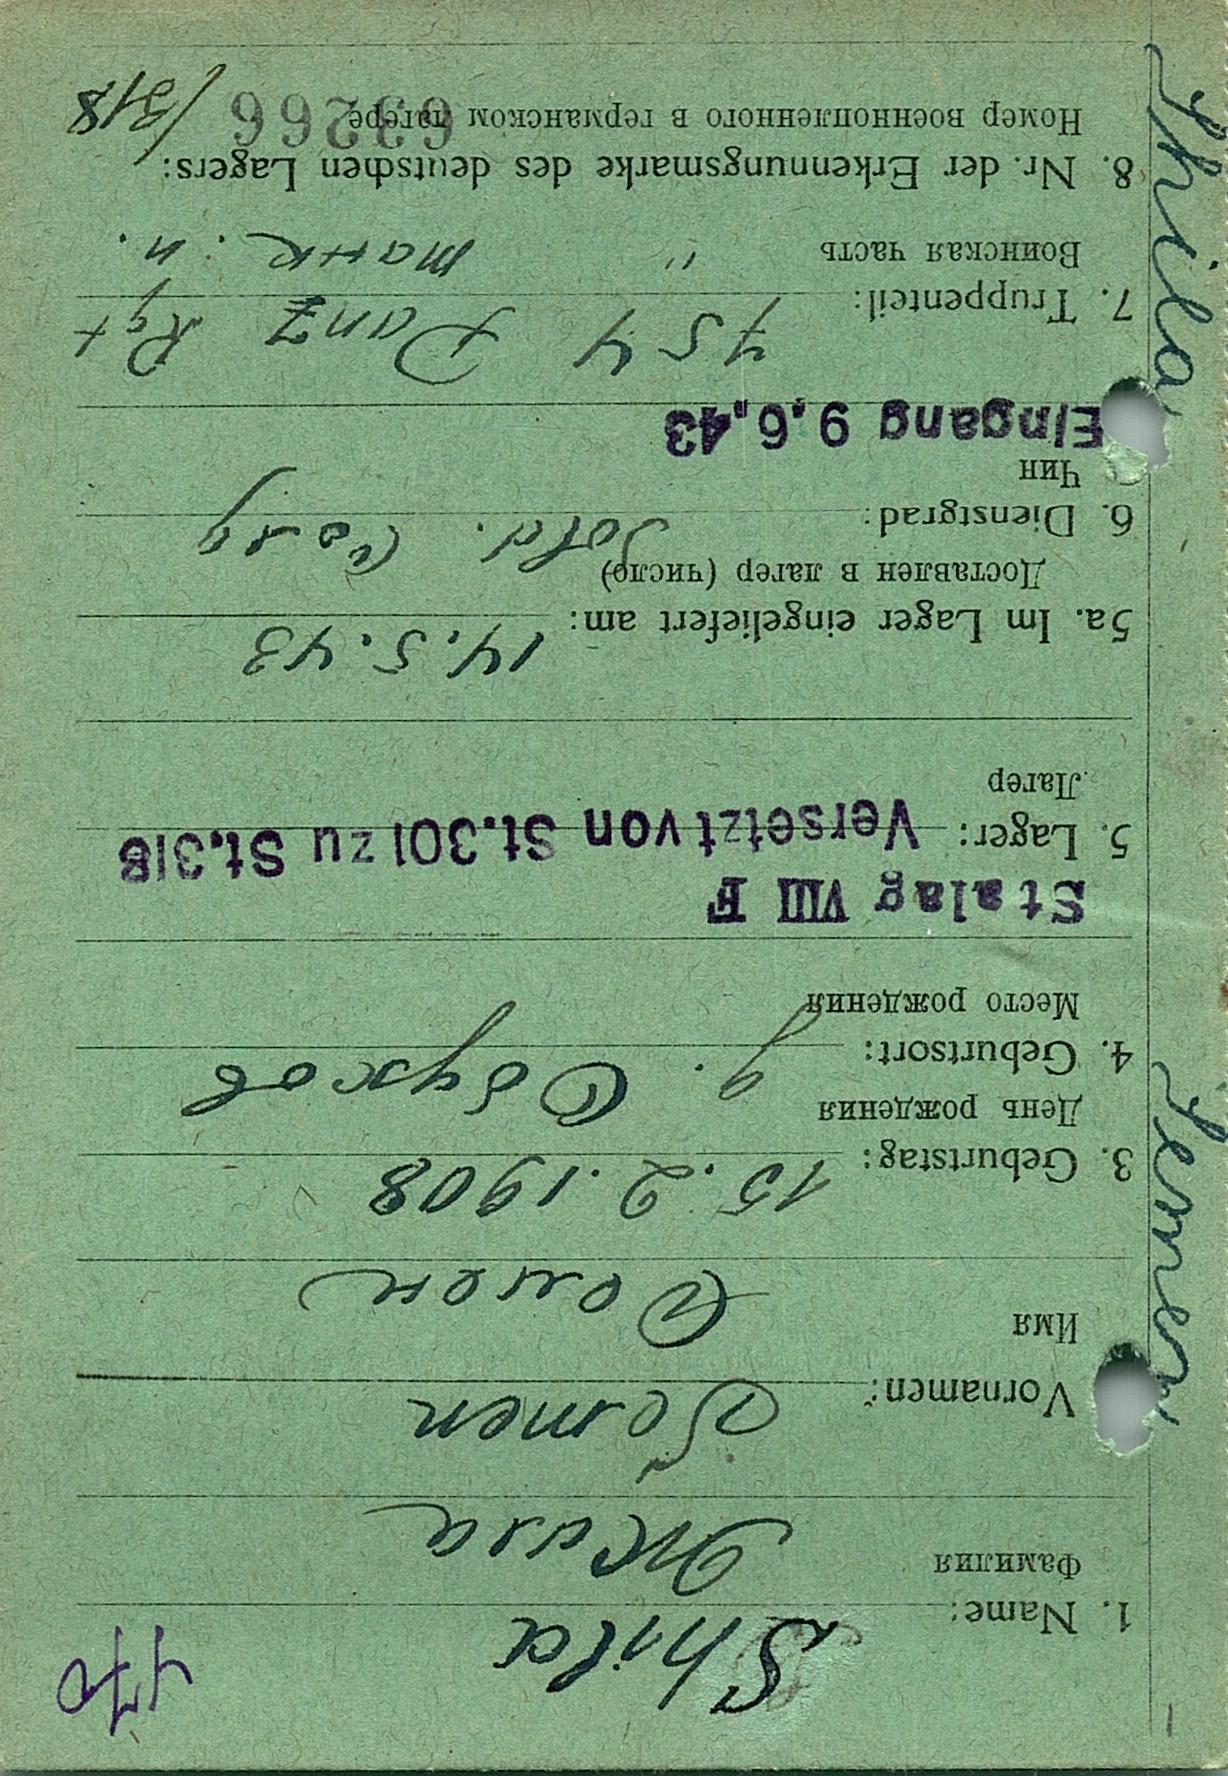 Shila
1. Name:
Фамилия
Жила
Semen
Vornamen:
Имя
Семен
15.2.1908
3. Geburtstag:
День рождения
4. Geburtsort:
д. Обухов
Место рождения
Stalag VIII F
5. Lager: Versetzt von St.301 zu St.318
Лагер
14.5.43
5a. Im Lager eingeliefert am:
Доставлен в лагер (число)
6. Dienstgrad: Sold.
Чин
Eingang 9.6.43
754 Panz Rgt
7. Truppenteil:
Воинская часть " танк. п.
8. Nr. der Erkennungsmarke des deutschen Lagers:
Номер военнопленного в германском лагере
63266 /318
Shila Semen